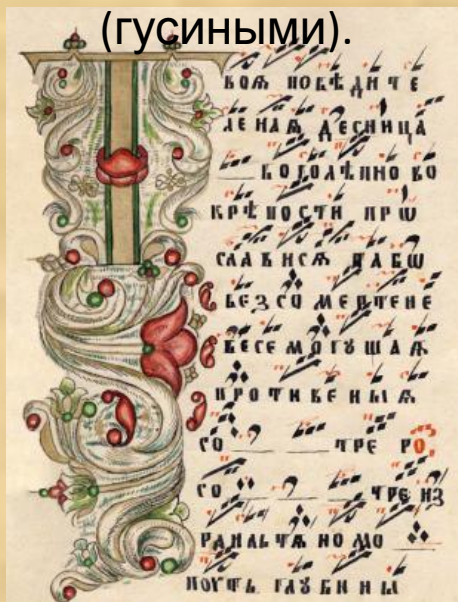 (гусиными).
Т ВОѦ ПОБѢ ДИ ТЕ
ЛЕ НАѦ ДЕСНИЦА
БО ГОЛѢПНО ВО
КРѢ ПОСТИ ПРѠ
СЛА ВИ СѦ ТА БѠ
БЕЗ СО МЕРТЕ НЕ
ВЕСЕ МО ГУЩА Ѧ
ПРО ТИ ВЕ НЫ Ѧ
СО ТРЕ РО
СО ТРЕ ИЗ
РАИЛЬ ТѦ НО МО
ПОУТЬ ГЛУ БИ НЫ